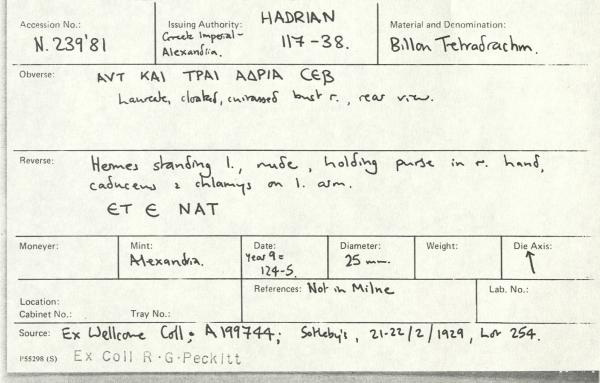 Accession No.: N.239'81
Issuing Authority: HADRIAN
Greek Imperial -
Alexandria. 117-38.
Material and Denomination:
Billon Tetradrachm.
Obverse: ΑVΤ ΚΑΙ ΤΡΑΙ ΑΔΡΙΑ ϹЄΒ
Laureate, cloaked, cuirassed bust r., rear view.
Reverse: Hermes standing l., nude, holding purse in r. hand,
caduceus & chlamys on l. arm.
ЄΤ Є ΝΑΤ
Moneyer:
Mint: Alexandria.
Date: Year 9 =
124-5.
Diameter: 25 mm.
Weight:
Die Axis: ↑
Location:
Cabinet No.: Tray No.:
References: Not in Milne
Lab. No.:
Source: Ex Wellcome Coll; A199744; Sotheby's, 21-22/2/1929, Lot 254.
P55298 (S) Ex Coll R.G.Peckitt